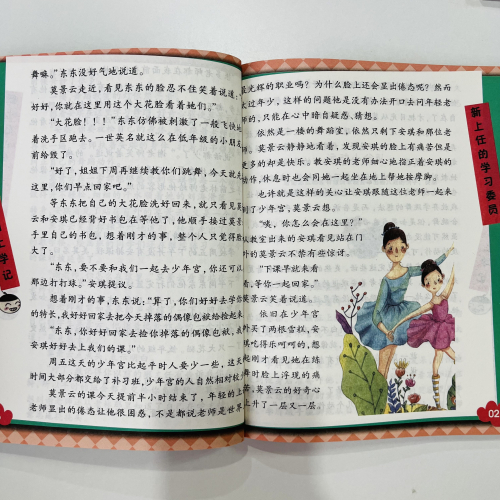 舞嘛。”东东没好气地说道。
莫景云走近，看见东东的脸忍不住笑着说道：
好好，你就在这里用这个大花脸看着她们。”
“大花脸！！！”东东仿佛被刺激了一般飞快地
着洗手区跑去。一世英名就这么在低年级的小朋友
前给毁了。
“好了，姐姐下周再继续教你们跳舞，今天就先
这里，你们早点回家吧。”
等东东把自己的大花脸洗好回来，就只看见莫
云和安琪已经背好书包在等他了，他顺手接过莫景
手里自己的书包，想着刚才的事，整个人只觉得脸
大了。
“东东，要不要和我们一起去少年宫，你还可以
那边打打球。”安琪提议。
想着刚才的事，东东说：“算了，你们好好去学你
的特长，我好好回家去把今天掉落的偶像包袱给捡起来
“东东，你好好回家去捡你掉落的偶像包袱，我
安琪好好去上我们的课。”
周五这天的少年宫比起平时人要少一些，这天
时间大部分都交给了补习班，少年宫的人自然相对较少
莫景云的课今天提前半小时结束了，年轻的上
老师显出的倦态让他很困惑，不是都说老师是世界
光辉的职业吗？为什么脸上还会显出倦态呢？然而
大过年少，这样的问题他是没有办法开口去问年轻老
师的，只能在心中暗自疑惑、猜想。
依然是一楼的舞蹈室，依然只剩下安琪和那位老
师。莫景云静静地看着，发现安琪的脸上有痛苦但是
更多的却是快乐。教安琪的老师细心地指正着安琪的
动作，休息时也会同她一起坐在地上帮她按摩脚。
也许就是这样的关心让安琪跟随这位老师一起来
到了少年宫，莫景云想。
“咦，你怎么会在这里？”
从教室出来的安琪看见站在门
外的莫景云不禁有些惊讶。
“下课早就来看
看，等你一起回家。”
莫景云笑着说道。
依旧在少年宫
外买了两根雪糕，安
琪吃得乐呵呵的，想
起刚才看见她在练
舞时脸上浮现的痛
苦，莫景云的好奇心
上升了一层又一层。
新上任的学习委员
上学记
02